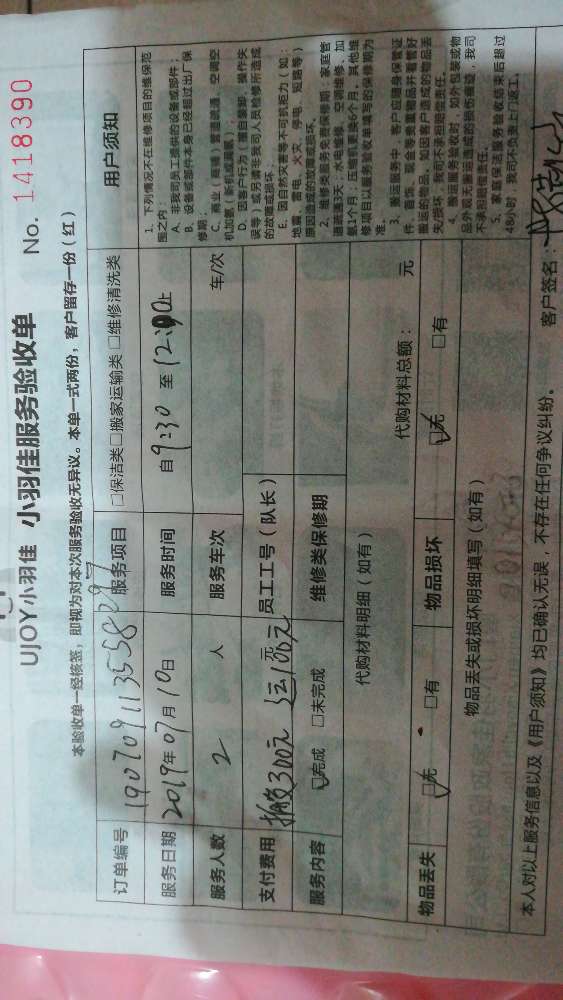 UJOY小羽佳 小羽佳服务验收单 No. 1418390
本验收单一经核签，即视为对本次服务验收无异议。本单一式两份，客户留存一份（红）
订单编号 190709113558 服务项目 □保洁类□搬家运输类□维修清洗类
服务日期 2019年07月10日 服务时间 自9:30至12:00止
服务人数 2 人 服务车次 车/次
支付费用 300元 元 员工工号（队长）
服务内容 ☑完成 □未完成 维修类保修期
代购材料明细（如有） 代购材料总额： 元
物品丢失 ☑无 □有 物品损坏 ☑无 □有
物品丢失或损坏明细填写（如有）
本人对以上服务信息以及《用户须知》均已确认无误，不存在任何争议纠纷。 客户签名：
用户须知
1. 下列情况不在维修项目的维保范
围之内：
A. 非我司员工提供的设备或部件；
B. 设备或部件本身已经超过出厂保
修期；
C. 商业（商铺）管道疏通、空调空
机加氨（新机或漏氨）；
D. 因客户行为（擅自装卸、操作失
误等）或另请非本司人员检修所造成
的故障或损坏。
E. 因自然灾害等不可抗拒力（如：
地震、雷电、火灾、停电、短路等）
原因造成的故障或损坏。
2. 维修类服务免费保修期：家庭管
道疏通3天；水电维修、空调维修、加
氨1个月；压缩机更换6个月，其他维
修项目以服务验收单填写的保修期为
准。
3. 搬运服务中，客户应随身保管证
件、首饰、现金等贵重物品并看管好
搬运的物品，如因客户造成的物品丢
失/损坏，我司不承担赔偿责任。
4. 搬运服务验收时，如外包装或物
品外观无搬运造成的损伤痕迹，我司
不承担赔偿责任。
5. 家庭保洁服务验收结束后超过
48小时，我司不负责上门返工。